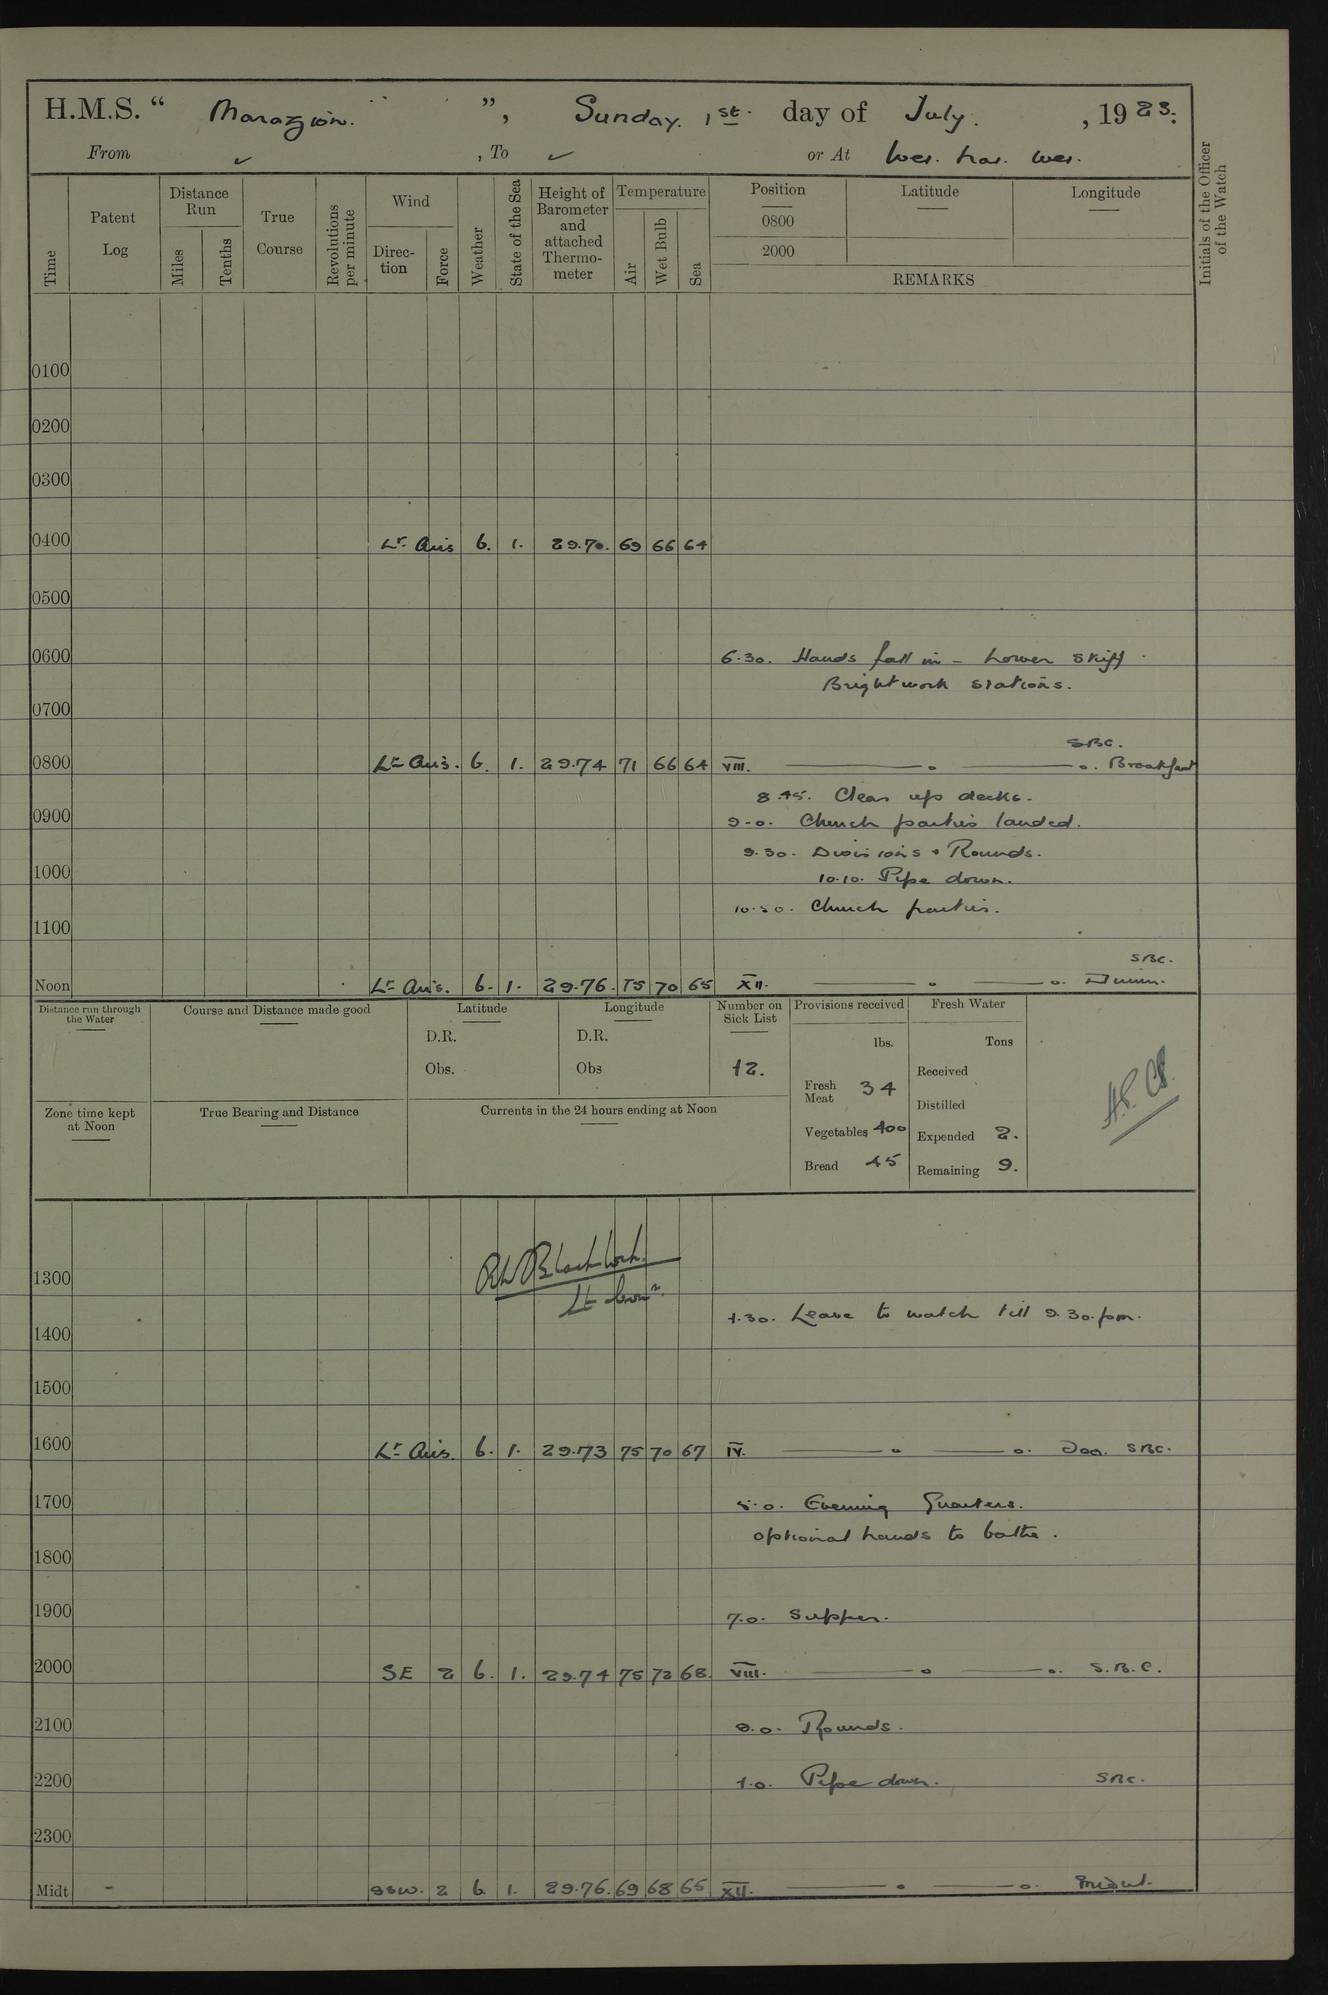 H.M.S. “ Marazion. ”, Sunday. 1st. day of July. , 1923.
From ✓ , To ✓ or At Wei. hai. wei.
Time Patent Log Distance Run Miles Tenths True Course Revolutions per minute Wind Direc-tion Force Weather State of the Sea Height of Barometer and attached Thermo-meter Temperature Air Wet Bulb Sea Position Latitude Longitude Initials of the Officer of the Watch
0800
2000
REMARKS
0100
0200
0300
0400 Lt. Airs b. 1. 29.70. 69 66 64
0500
0600 6.30. Hands fall in – Lower Skiff
Brightwork stations.
0700
SBC.
0800 Lt. Airs. b. 1. 29.74 71 66 64 VIII. —— o —— o. Breakfast
8.45. Clear up decks.
0900 9.0. Church parties landed.
9.30. Divisions & Rounds.
1000 10.10. Pipe down.
10.50. Church parties.
1100
SBC.
Noon Lt. Airs. b. 1. 29.76. 75 70 65 XII. —— o —— o. Dinner.
Distance run through the Water Course and Distance made good Latitude Longitude Number on Sick List Provisions received Fresh Water
D.R. D.R. lbs. Tons
Obs. Obs 12. Fresh Meat 34 Received
Distilled
Zone time kept at Noon True Bearing and Distance Currents in the 24 hours ending at Noon Vegetables 400 Expended 2.
Bread 45 Remaining 9.
1300
Lt Comr.
1.30. Leave to watch till 9.30.pm.
1400
1500
1600 Lt. Airs. b. 1. 29.73 75 70 67 IV. —— o —— o. SBC.
1700 5.0. Evening Quarters.
optional hands to bathe.
1800
1900 7.0. Supper.
2000 SE 2 b. 1. 29.74 75 72 68. VIII. —— o —— o. S.B.C.
2100 9.0. Rounds.
2200 1.0. Pipe down. SBC.
2300
Midt - SSW. 2 b 1. 29.76. 69 68 65 XII. —— o —— o.